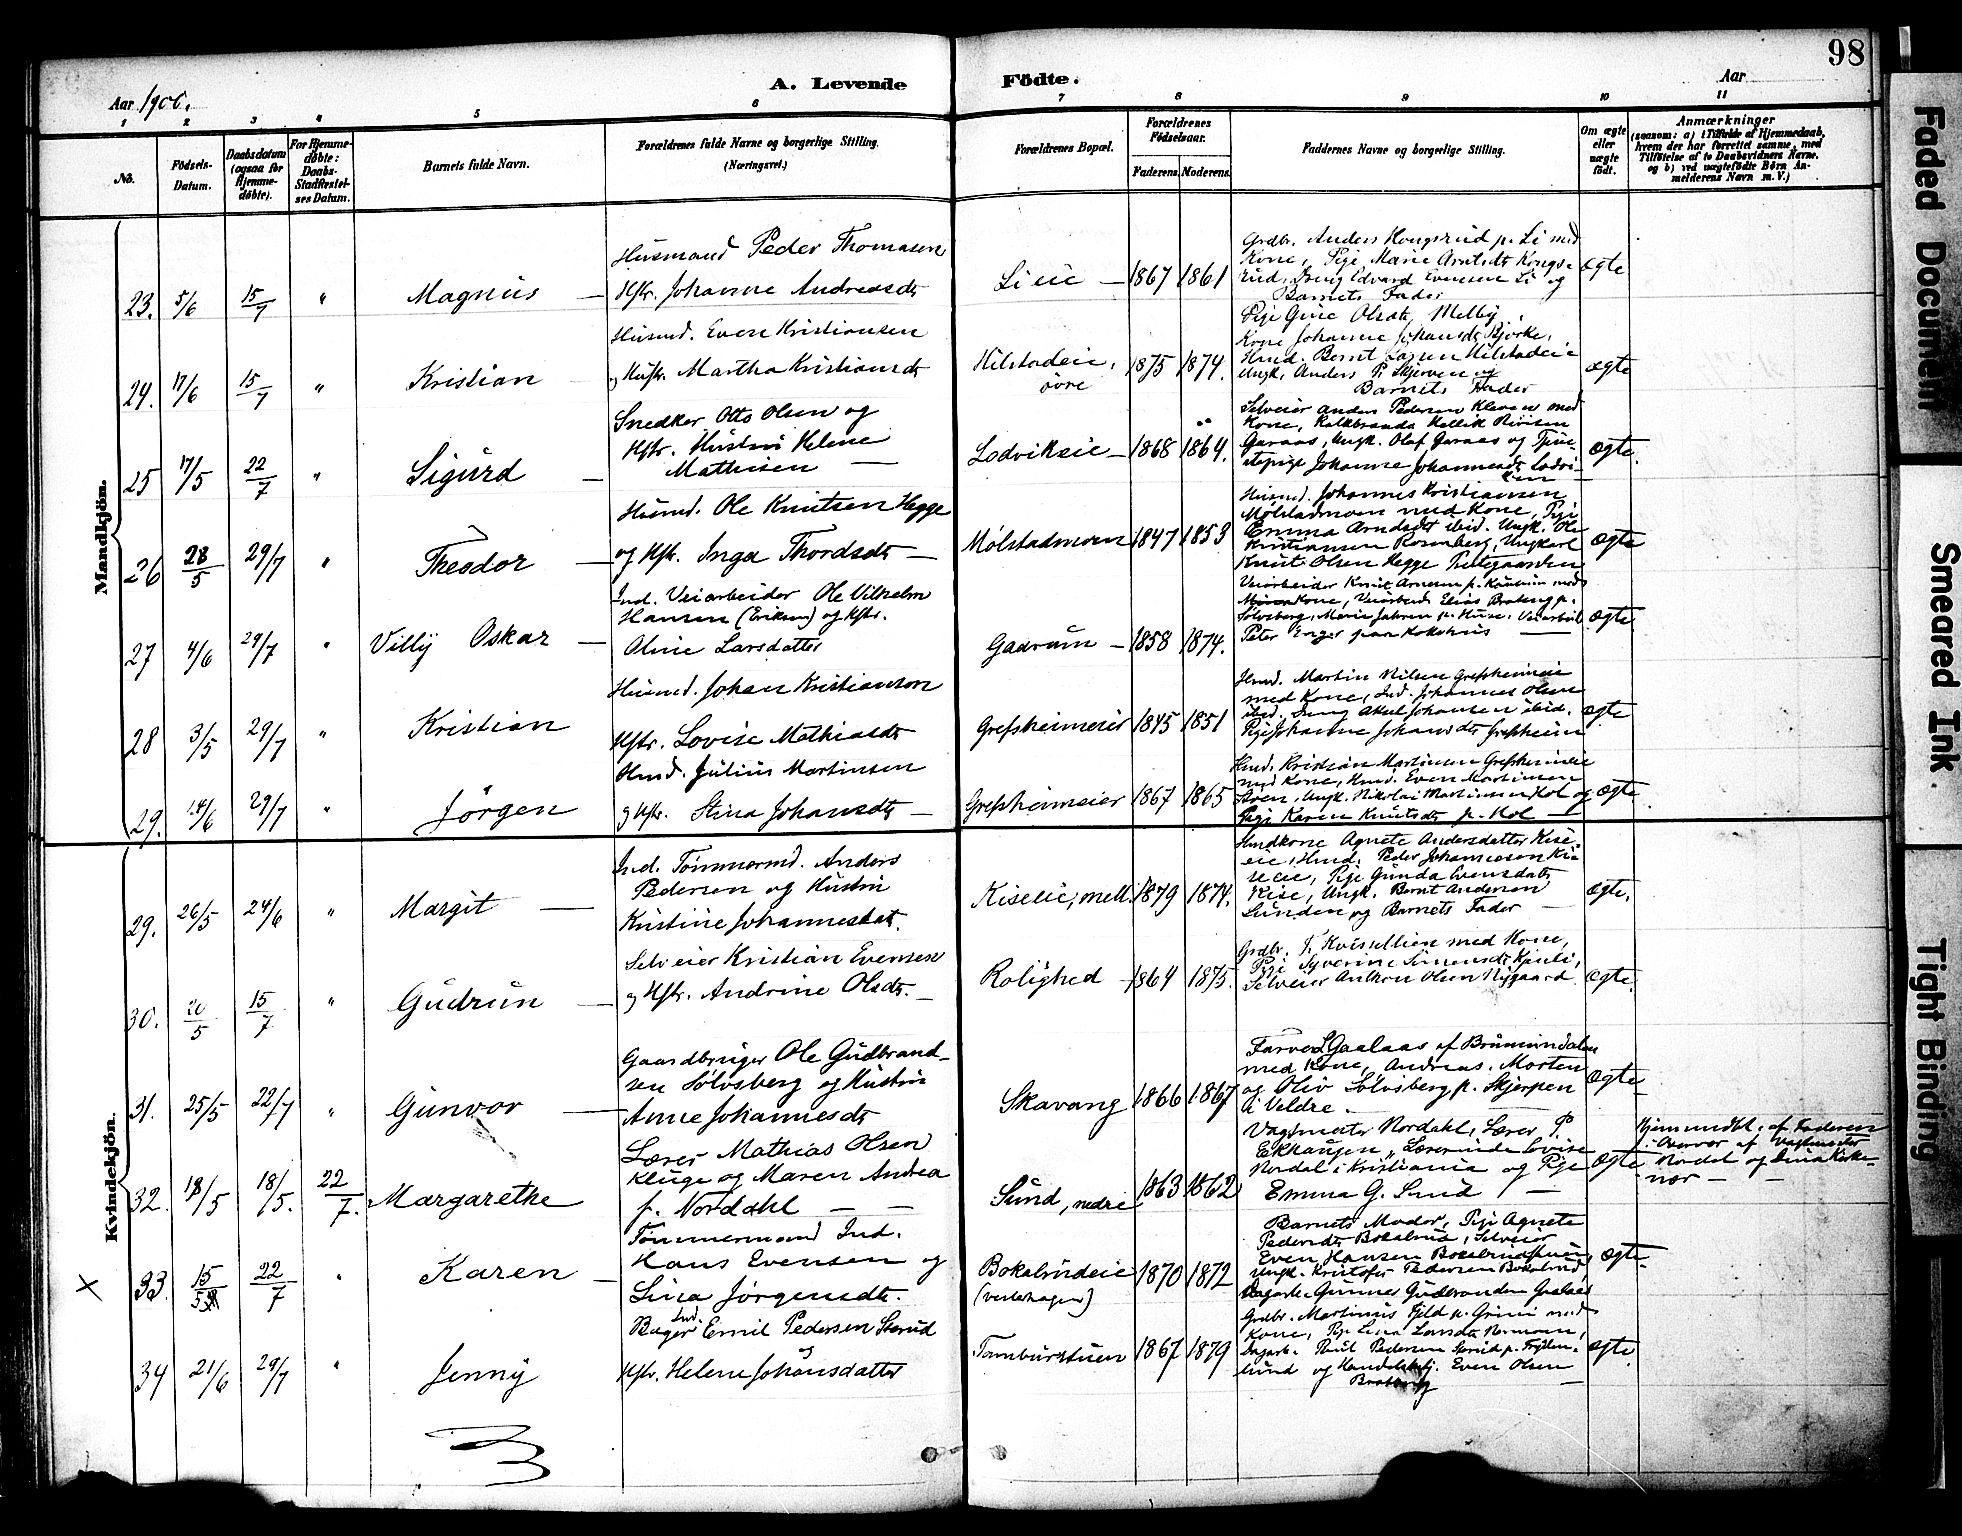 98
A. Levende Födte.
Aar 1900.
Aar
1 2 3 4 5 6 7 8 9 10 11
No.
Födsels-Datum.
Daabsdatum (ogsaa for Hjemmedøbte).
For Hjemmedøbte: Daabs-Stadfæstelses Datum.
Barnets fulde Navn.
Forældrenes fulde Navne og borgerlige Stilling. (Næringsvei.)
Forældrenes Bopæl.
Forældrenes Födselsaar.
Faderens. Moderens.
Faddernes Navne og borgerlige Stilling.
Om ægte eller uægte født.
Anmærkninger
(saasom: a) i Tilfælde af Hjemmedaab, hvem der har forrettet samme, med Tilføielse af to Daabsvidners Navne. og b) ved uægtefødte Børn Anmelderens Navn m. V.)
Mandkjön.
23. 5/6 15/7 " Magnus —
Husmand Peder Thomasen
Hstr. Johanne Andreasdt
Li eie — 1867 1861
Grdbr. Anders Kongsrud p. Li med
Kone, Pige Marie Arntsdt Kongs-
rud, Dreng Edvard Evensen Li og
Barnets Fader
ægte
24. 17/6 15/7 " Kristian —
Husmd. Even Kristiansen
og Hustr. Martha Kristiansdt
Hilstadeie, övre
1875 1874.
Pige Gine Olsdt, Melby,
Kone Johanne Johansdt Bjørke,
Hmd. Bernt Larsen Hilstadeie
Ungk. Anders P. Skjerven og
Barnets Fader
ægte
25 17/5 22/7 " Sigurd —
Snedker Otto Olsen og
Hstr. Hustru Helene
Mathisen —
Lodviksie — 1868 1864.
Selveier Anders Pedersen Kleven med
Kone,
Garaas, Ungk. Olaf Garaas og Tjene-
stepige Johanne Johannesdt Lodvi-
ken —
ægte.
26 28/5 29/7 " Theodor —
Husmd. Ole Knutsen Hegge
og Hstr. Inga Thordsdt —
Mölstadmoen 1847 1853
Husmd. Johannes Kristiansen
Mølstadmoen med Kone, Pige
Emma Arndsdt ibid. Ungk. Ole
Kristiansen Rosenberg, Ungkarl
Knut Olsen Hegge Prestegaarden
ægte
27 4/6 29/7 " Villy Oskar —
Ind. Veiarbeider Ole Vilhelm
Hansen (Eriksen) og Hstr.
Oline Larsdatter
Gaarum — 1858 1874.
Veiarbeider Knut Arnesen p. med
Kone, Veiarbeid. Elias Brateng p.
Sölvsberg, Marie Jahren p. Huse. Veiarbeid.
Peter Enger paa Kokohus —
ægte.
28 3/5 29/7 " Kristian
Husmd. Johan Kristianson
Hstr. Lovise Mathiasdt
Grefsheimeier 1845 1851
Hmd. Martin Nilsen Grefsheimeie
med Kone, Ind. Johannes Olsen
ibid. Dreng Aksel Johansen ibid.
Pige Johanne Johansdt Grefsheim
ægte
29. 14/6 29/7 " Jörgen
Hmd. Julius Martinsen
og Hstr. Stina Johansdt —
Grefsheimeier 1867 1865
Hmd. Kristian Martinsen Grefsheimeie
med Kone, Hmd. Even Martinsen
Steen, Ungk. Nikolai Martinsen Hol og
Pige Karen Knutsdt p. Hol —
ægte
Kvindekjön.
29. 26/5 24/6 " Margit —
Ind. Tömmermd. Anders
Pedersen og Hustru
Kristine Johannesdat.
Kiseeie, mell. 1879 1874.
Hmdkone Agnete Andersdatter Kise-
eie, Hmd. Peder Johannesen Ki-
seeie, Pige Gunda Evensdat,
Kise, Ungk. Bernt Andersen
Lunden og Barnets Fader —
ægte.
30. 20/5 15/7 " Gudrun —
Selveier Kristian Evensen
og Hstr. Andrine Olsdt. —
Rolighed — 1864 1875.
Grdbr. P. Kvisellien med Kone,
Pige Syverine Simensdt
Selveier Anthon Olsen Nygaard
ægte.
31. 25/5 22/7 " Gunvor —
Gaardbruger Ole Gudbrand-
sen Sölvsberg og Hustru
Anne Johannesdt
Skavang 1866 1867
Farver Gaalaas af Brumunddalen
med Kone, Andreas, Morten
og Oliv Sölvsberg p. Skjerpen
i Veldre. —
ægte
32. 18/5 18/5. 22/7. Margarethe
Lærer Mathias Olsen
Kluge og Maren Andrea
f. Nordahl — —
Sund, nedre 1863 1862
Vagtmester Nordahl, Lærer P.
Ekhaugen, Lærerinde Lovise
Nordal i Kristiania og Pige
Emma G. Sund —
ægte
Hjemmedbt. af Faderen
i Overvær af Vagtmester
Nordal og
33. 15/5 22/7 " Karen —
Tömmermand Ind.
Hans Evensen og
Lina Jörgensdt.
Bokalrudeie
1870 1872
Barnets Moder, Pige Agnete
Pedersdt Bokalrud, Selveier
Even Hansen Bokalrudstuen,
Ungk. Kristofer Pedersen Bokalrud
Dagarb. Gunner Gudbrandsen
ægte.
34 21/6 29/7 " Jenny
Bager Ind. Emil Pedersen Sterud
Hstr. Helene Johansdatter
Tamburstuen 1867 1879
Grdbr. Martinus Fjeld p. Grimi med
Kone, Pige Lina Larsdt Normoen,
Dagarb. Paul Pedersen Sterud p. Fryden-
lund og Handelsbetj. Even Olsen
Brateng —
ægte.
Faded Document
Smeared Ink.
Tight Binding